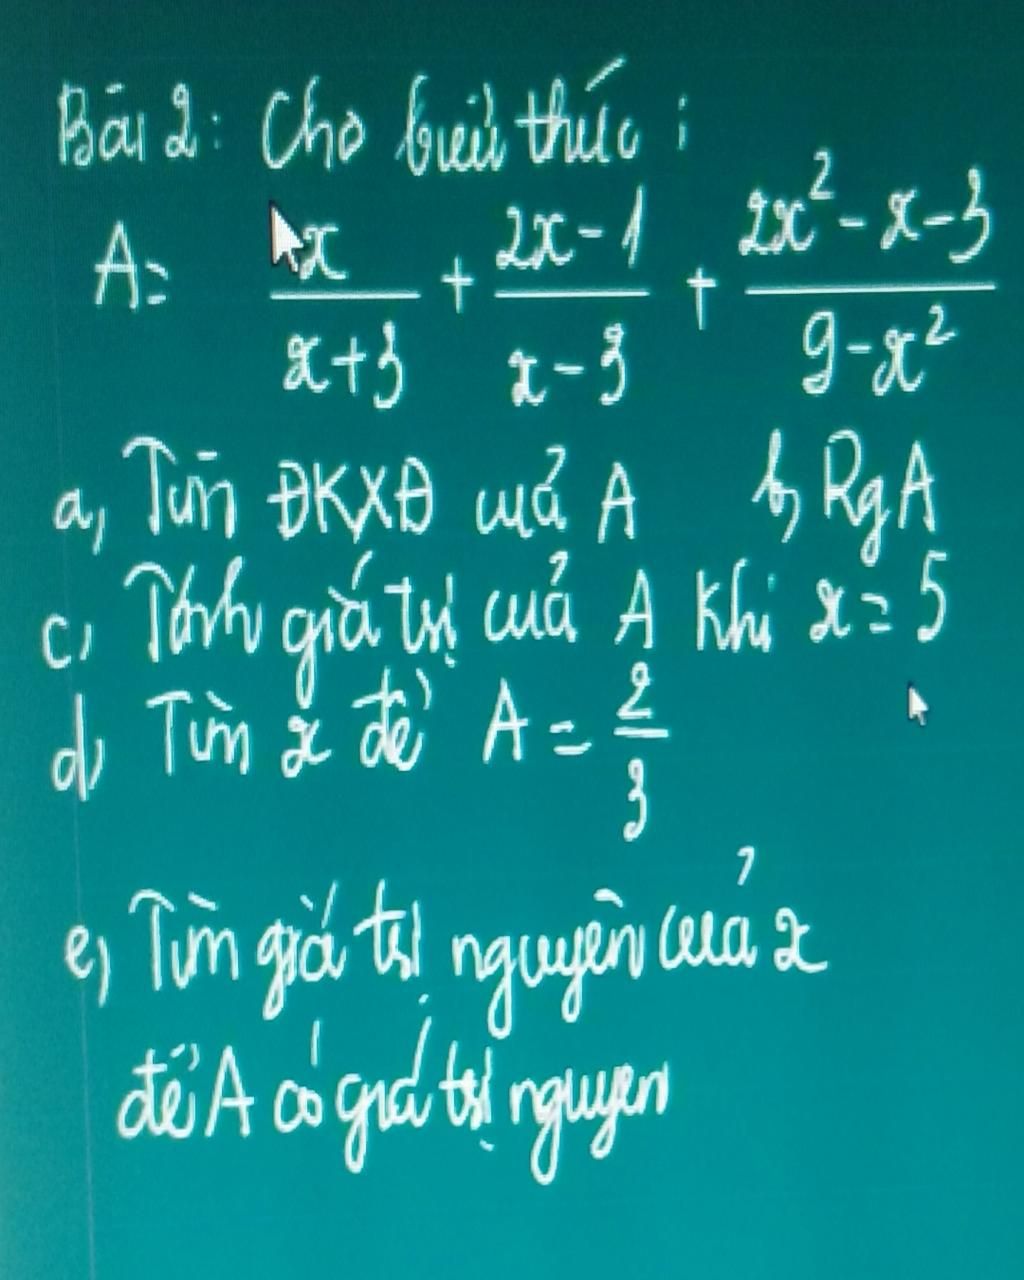 Bài 2: Cho biểu thức :
A = x/(x+3) + (2x-1)/(x-3) + (2x² - x - 3)/(9 - x²)
a, Tìm ĐKXĐ của A b, Rg A
c, Tính giá trị của A khi x = 5
d, Tìm x để A = 2/3
e, Tìm giá trị nguyên của x
để A có giá trị nguyen